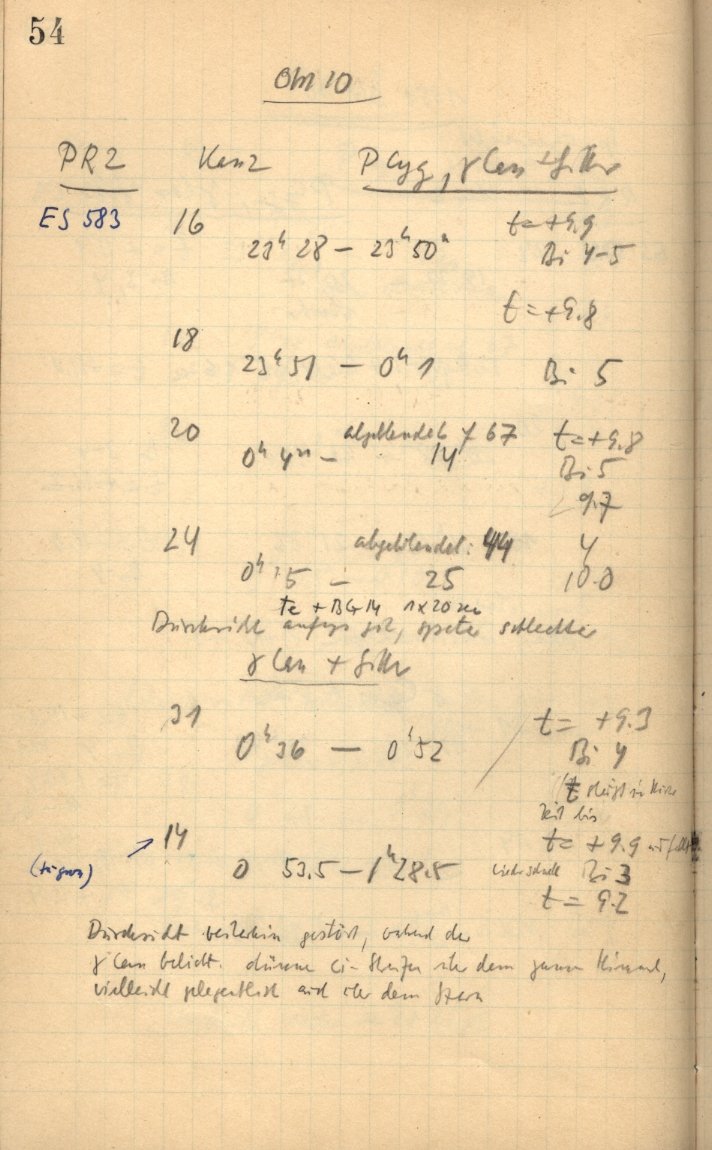 54
Okt 10
PR2 Kan2 P Cyg, γ Cas + Filter
ES 583 16 t= +9.9
23h 28 — 23h 50m Bi 4-5
t = +9.8
18
23h 51 — 0h 1 Bi 5
20 abgeblendet 67 t= +9.8
0h 4m — 14 Bi 5
9.7
24 abgeblendet: 44 4
0h 15 — 25 10.0
+ BG 14 1x20
Durchsicht anfangs gut, später schlechter
γ Cas + Filter
31 t = +9.3
0h 36 — 0h 52 Bi 4
t steigt in
Zeit bis
14 t = +9.9
0 53.5 — 1h 28.5 Bi 3
t = 9.2
Durchsicht weiterhin gestört, während der
γ Cas belicht. dünne Ci-Streifen über dem ganzen Himmel,
vielleicht gelegentlich auch über dem Stern